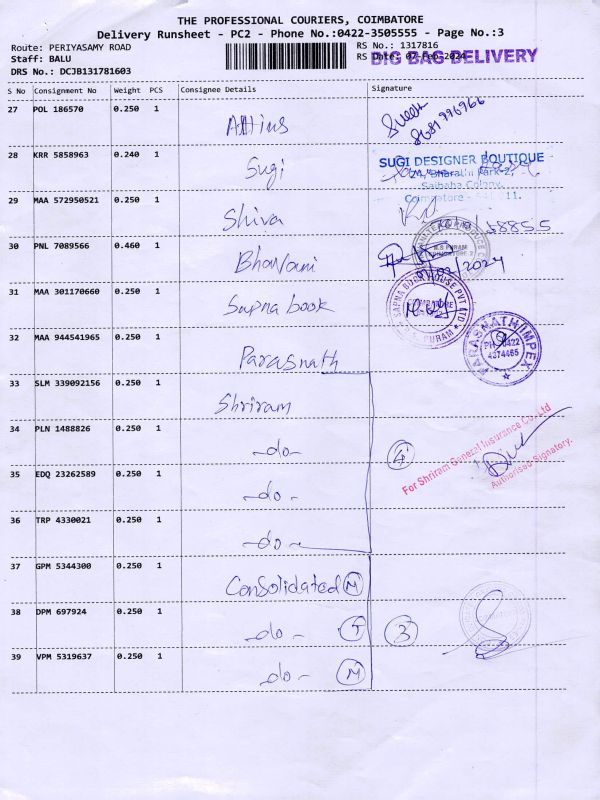 THE PROFESSIONAL COURIERS, COIMBATORE
Delivery Runsheet - PC2 - Phone No.:0422-3505555 - Page No.:3
Route: PERIYASAMY ROAD
Staff: BALU
DRS No.: DCJB131781603
RS No.: 1317816
RS Date: 07-Feb-2024
BIG BAG DELIVERY
S No Consignment No Weight PCS Consignee Details Signature
27 POL 186570 0.250 1 Attius
28 KRR 5858963 0.240 1 Sugi
SUGI DESIGNER BOUTIQUE
Saibaba Colony,
29 MAA 572950521 0.250 1 Shiva
30 PNL 7089566 0.460 1 Bhavani
31 MAA 301170660 0.250 1 Sapna book
SAPNA BOOK HOUSE PVT LTD
32 MAA 944541965 0.250 1 Parasnath
PARASNATH IMPEX
PH: 0422
4374465
33 SLM 339092156 0.250 1 Shriram
34 PLN 1488826 0.250 1 -do- 4
For Shriram General Insurance Co. Ltd
Authorised Signatory.
35 EDQ 23262589 0.250 1 -do-
36 TRP 4330021 0.250 1 -do-
37 GPM 5344300 0.250 1 Consolidated M
38 DPM 697924 0.250 1 -do- T 3
39 VPM 5319637 0.250 1 -do- M